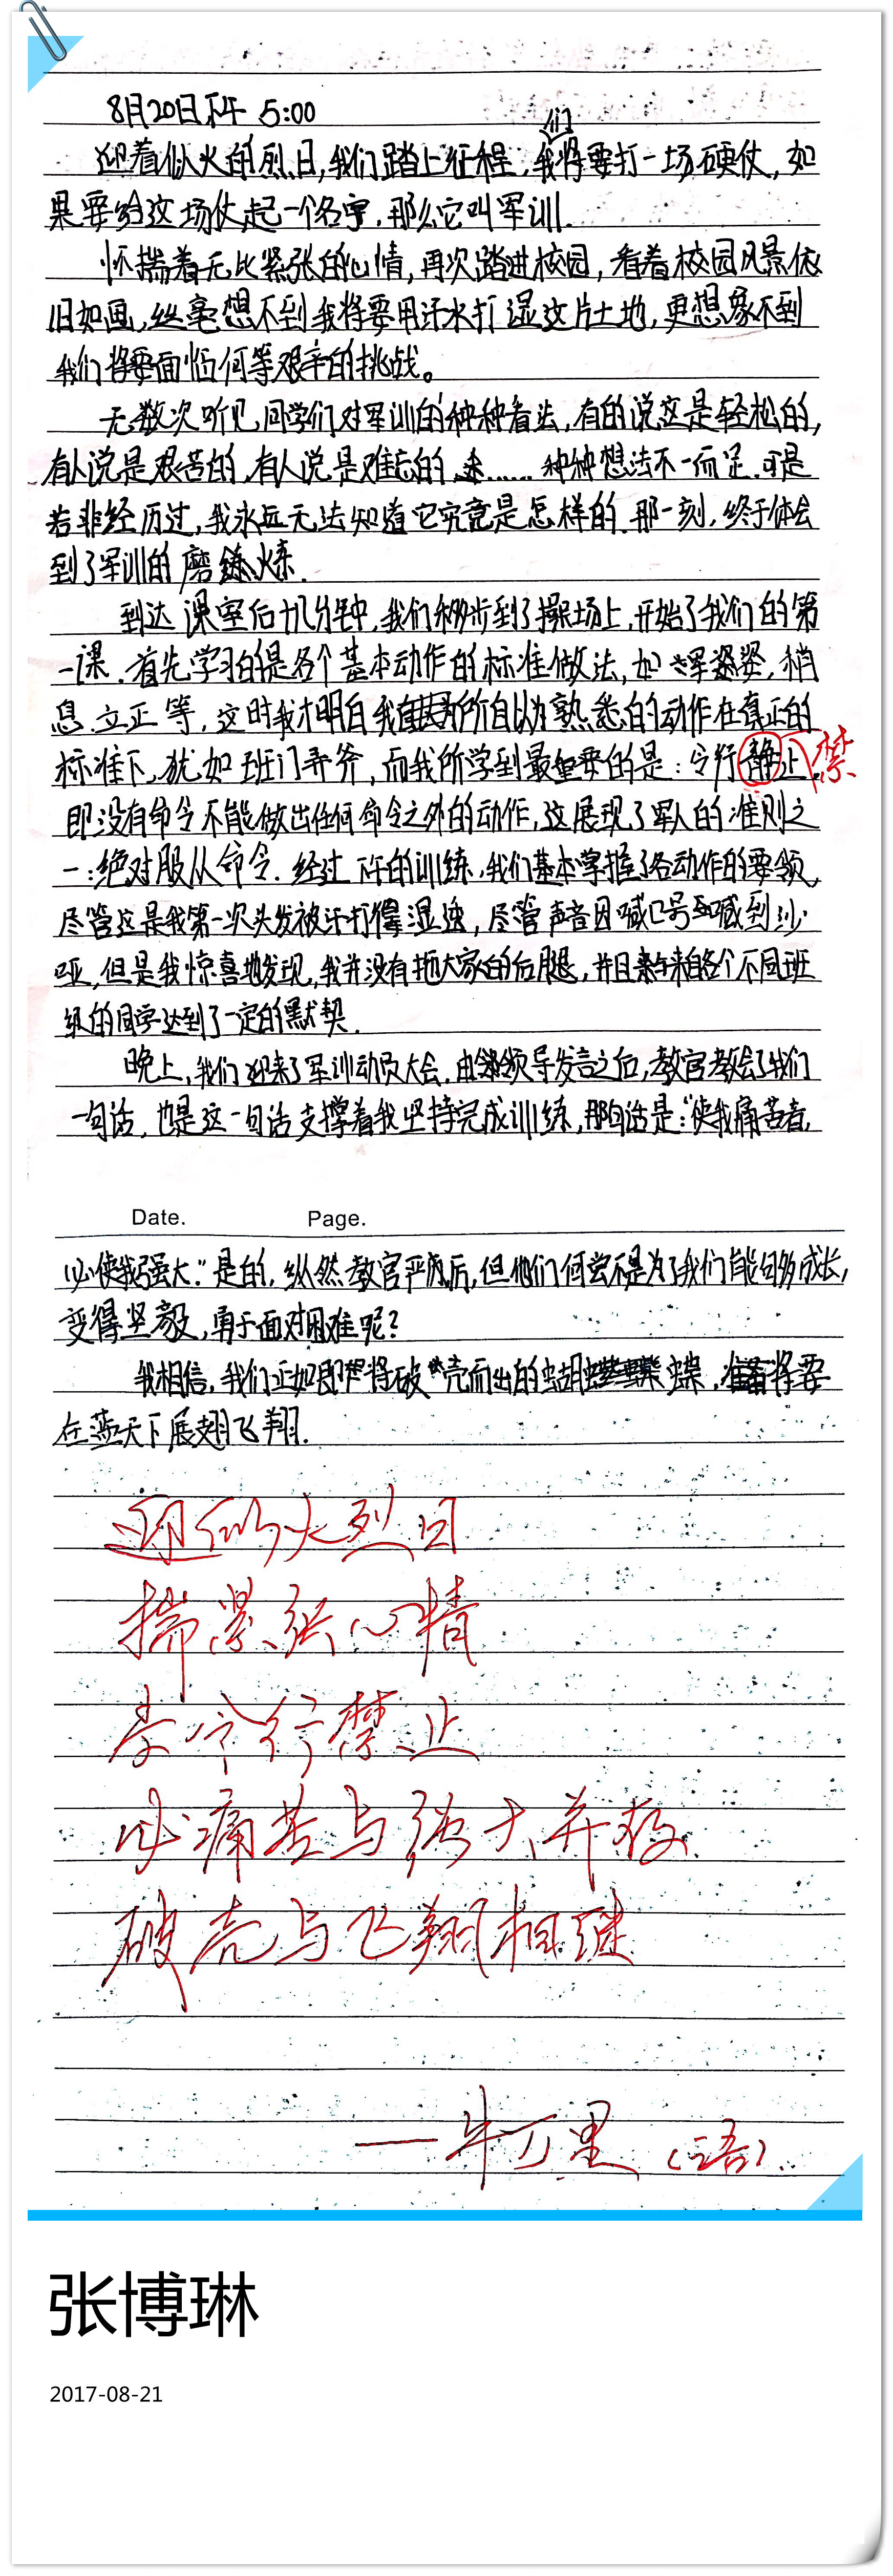 8月20日下午 5:00
迎着似火的烈日,我们踏上征程,我们将要打一场硬仗,如
果要给这场仗起一个名字,那么它叫军训.
怀揣着无比紧张的心情,再次踏进校园,看着校园风景依
旧如画,丝毫想不到我将要用汗水打湿这片土地,更想象不到
我们将要面临何等艰辛的挑战。
无数次听见同学们对军训的种种看法,有的说这是轻松的,
有人说是艰苦的,有人说是难忘的......种种想法不一而足.可是
若非经历过,我永远无法知道它究竟是怎样的.那一刻,终于体会
到了军训的磨炼.
到达课室后十几分钟,我们移步到了操场上,开始了我们的第
一课.首先学习的是各个基本动作的标准做法,如军姿,稍
息.立正等,这时我才明白我所自以为熟悉的动作在真正的
标准下,犹如班门弄斧,而我所学到最重要的是:令行静止.
禁
即没有命令不能做出任何命令之外的动作,这展现了军人的准则之
一:绝对服从命令.经过下午的训练,我们基本掌握了各动作的要领,
尽管这是我第一次头发被汗打得湿透,尽管声音因喊口号而喊到沙
哑,但是我惊喜地发现,我并没有拖大家的后腿,并且来自各个不同班
级的同学达到了一定的默契.
晚上,我们迎来了军训动员大会.由领导发言之后,教官教会了我们
一句话,也是这一句话支撑着我坚持完成训练,那句话是:"使我痛苦者,
Date. Page.
必使我强大."是的,纵然教官严厉,但他们何尝不是为了我们能够成长,
变得坚毅,勇于面对困难呢?
我相信,我们正如即将破壳而出的蝴蝶,将要
在蓝天下展翅飞翔.
迎似火烈日
揣紧张心情
学令行禁止
必痛苦与强大并存
破壳与飞翔相继
——牛万里(语)
张博琳
2017-08-21